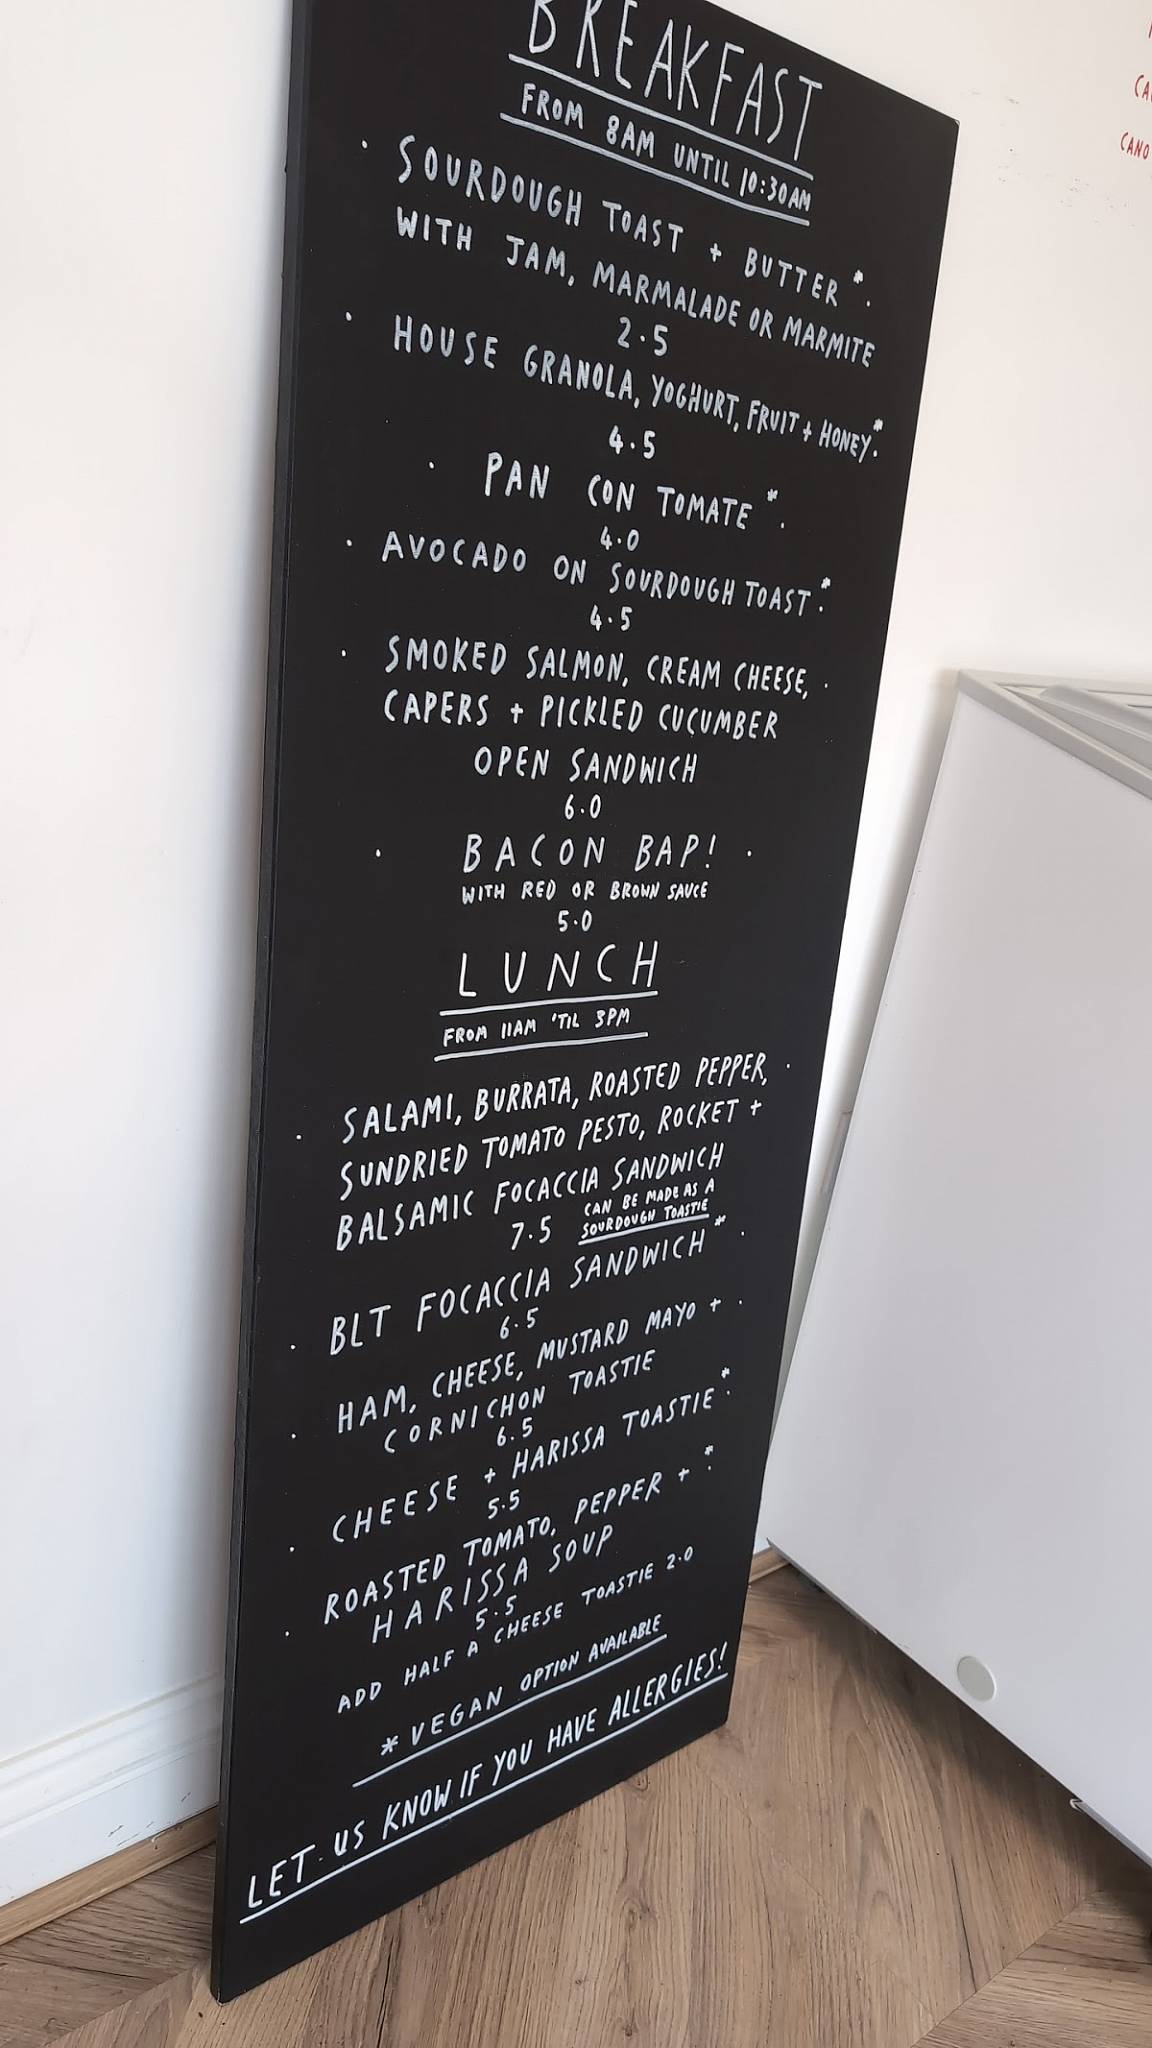 BREAKFAST
FROM 8AM UNTIL 10:30AM
· SOURDOUGH TOAST + BUTTER*·
WITH JAM, MARMALADE OR MARMITE
2.5
· HOUSE GRANOLA, YOGHURT, FRUIT + HONEY*·
4.5
· PAN CON TOMATE*·
4.0
· AVOCADO ON SOURDOUGH TOAST*·
4.5
· SMOKED SALMON, CREAM CHEESE, ·
CAPERS + PICKLED CUCUMBER
OPEN SANDWICH
6.0
· BACON BAP! ·
WITH RED OR BROWN SAUCE
5.0
LUNCH
FROM 11AM 'TIL 3PM
· SALAMI, BURRATA, ROASTED PEPPER, ·
SUNDRIED TOMATO PESTO, ROCKET +
BALSAMIC FOCACCIA SANDWICH
7.5 CAN BE MADE AS A
SOURDOUGH TOASTIE
· BLT FOCACCIA SANDWICH* ·
6.5
· HAM, CHEESE, MUSTARD MAYO + ·
CORNICHON TOASTIE
6.5
· CHEESE + HARISSA TOASTIE*·
5.5
· ROASTED TOMATO, PEPPER + *·
HARISSA SOUP
5.5
ADD HALF A CHEESE TOASTIE 2.0
* VEGAN OPTION AVAILABLE
LET US KNOW IF YOU HAVE ALLERGIES!